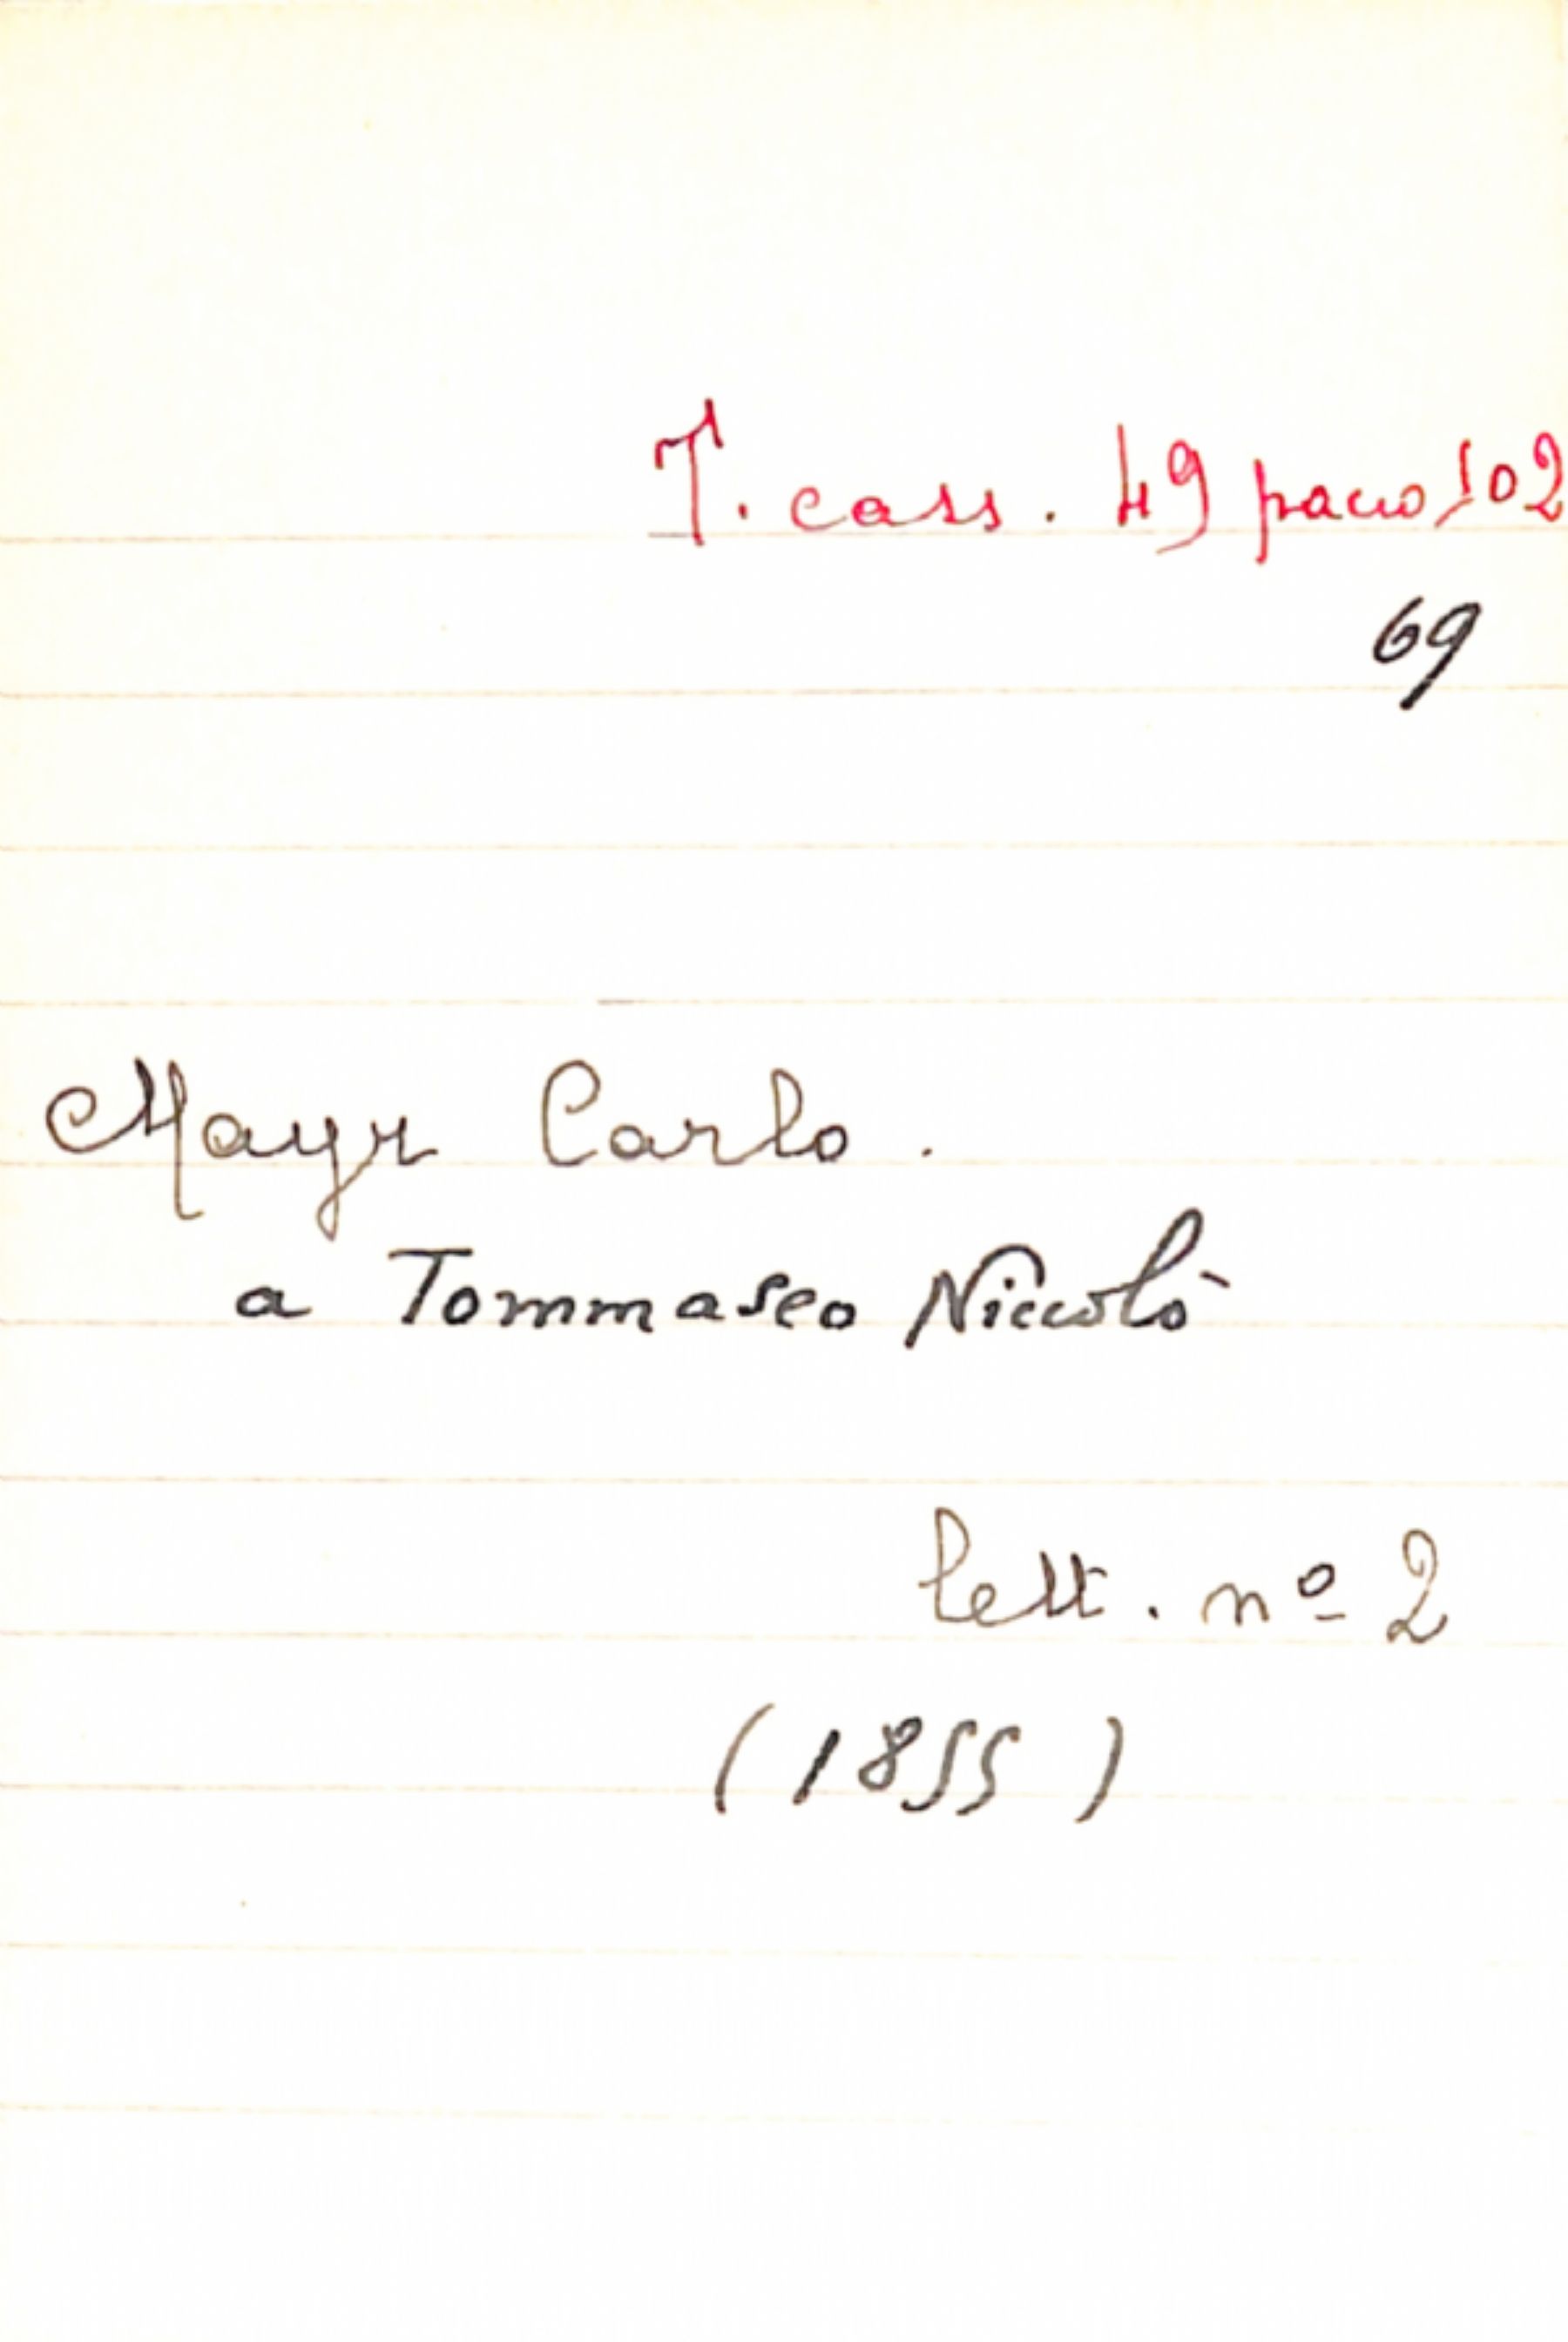 T. cass. 49 pacco 102
69
Mayr Carlo.
a Tommaseo Niccolò
lett. nº 2
(1855)